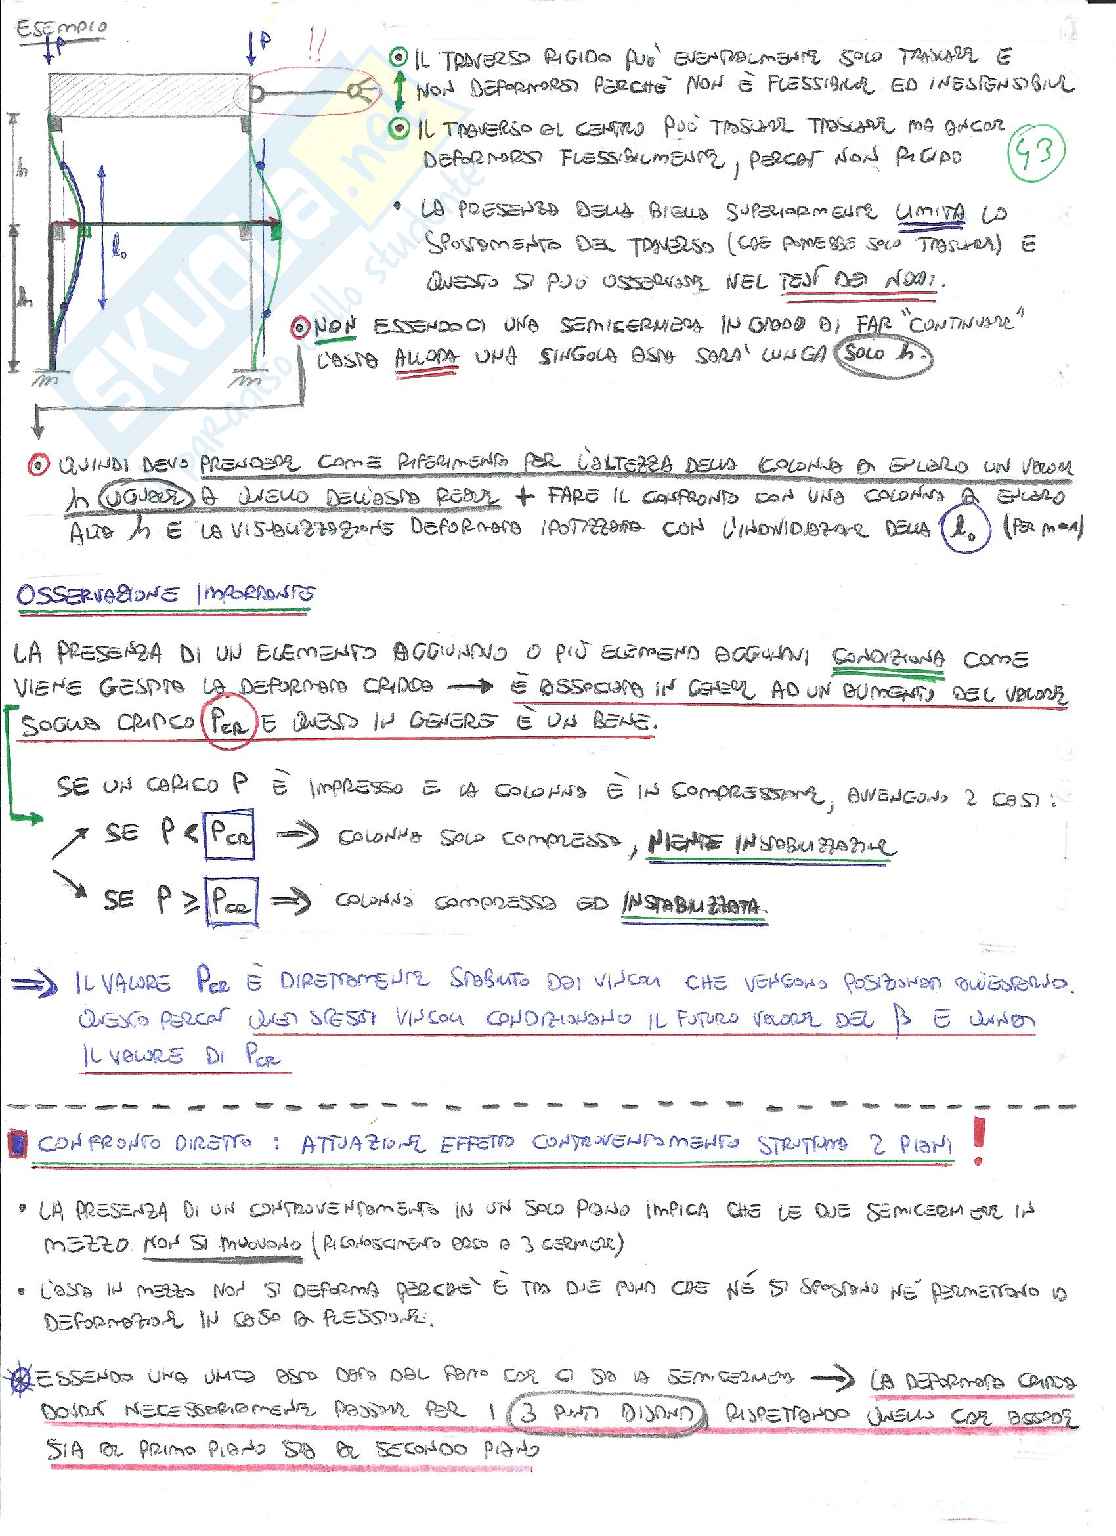 ESEMPIO
P
P
!!
IL TRAVERSO RIGIDO PUÒ EVENTUALMENTE SOLO TRASLARE E
NON DEFORMARSI PERCHÈ NON È FLESSIBILE ED INESTENSIBILE
IL TRAVERSO AL CENTRO PUÒ TRASLARE TRASLARE MA ANCHE
DEFORMARSI FLESSIBILMENTE, PERCHÈ NON RIGIDO
43
• LA PRESENZA DELLA BIELLA SUPERIORMENTE LIMITA LO
SPOSTAMENTO DEL TRAVERSO (CHE POTREBBE SOLO TRASLARE) E
QUESTO SI PUÒ OSSERVARE NEL TEST DEI NODI.
NON ESSENDOCI UNA SEMICERNIERA IN GRADO DI FAR "CONTINUARE"
L'ASTA ALLORA UNA SINGOLA ASTA SARÀ LUNGA SOLO h.
h
h
l₀
m
m
QUINDI DEVO PRENDERE COME RIFERIMENTO PER L'ALTEZZA DELLA COLONNA DI EULERO UN VALORE
h UGUALE A QUELLO DELL'ASTA REALE + FARE IL CONFRONTO CON UNA COLONNA DI EULERO
ALTA h E LA VISUALIZZAZIONE DEFORMATA IPOTIZZATA CON L'INDIVIDUAZIONE DELLA l₀
OSSERVAZIONE IMPORTANTE
LA PRESENZA DI UN ELEMENTO AGGIUNTIVO O PIÙ ELEMENTI AGGIUNTIVI CONDIZIONA COME
VIENE GESTITA LA DEFORMATA CRITICA → È ASSOCIATA IN GENERE AD UN AUMENTO DEL VALORE
SOGLIA CRITICO PCR E QUESTO IN GENERE È UN BENE.
SE UN CARICO P È IMPRESSO E LA COLONNA È IN COMPRESSIONE, AVVENGONO 2 CASI:
SE P < PCR ⇒ COLONNA SOLO COMPRESSA, NIENTE INSTABILIZZAZIONE
SE P ≥ PCR ⇒ COLONNA COMPRESSA ED INSTABILIZZATA.
⇒ IL VALORE PCR È DIRETTAMENTE STABILITO DAI VINCOLI CHE VENGONO POSIZIONATI ALL'ESTERNO.
QUESTO PERCHÈ QUESTI STESSI VINCOLI CONDIZIONANO IL FUTURO VALORE DEL β E QUINDI
IL VALORE DI PCR
CONFRONTO DIRETTO : ATTUAZIONE EFFETTO CONTROVENTAMENTO STRUTTURA 2 PIANI !
• LA PRESENZA DI UN CONTROVENTAMENTO IN UN SOLO PIANO IMPLICA CHE LE DUE SEMICERNIERE IN
MEZZO NON SI MUOVONO (RICONOSCIMENTO ARCO A 3 CERNIERE)
• L'ASTA IN MEZZO NON SI DEFORMA PERCHÈ È TRA DUE PUNTI CHE NÉ SI SPOSTANO NÉ PERMETTONO LA
DEFORMAZIONE IN CASO DI FLESSIONE.
ESSENDO UNA UNICA ASTA DATA DAL FATTO CHE CI SIA LA SEMICERNIERA → LA DEFORMATA CRITICA
DOVRÀ NECESSARIAMENTE PASSARE PER I 3 PUNTI DISTINTI, RISPETTANDO QUELLO CHE ACCADE
SIA AL PRIMO PIANO SIA AL SECONDO PIANO